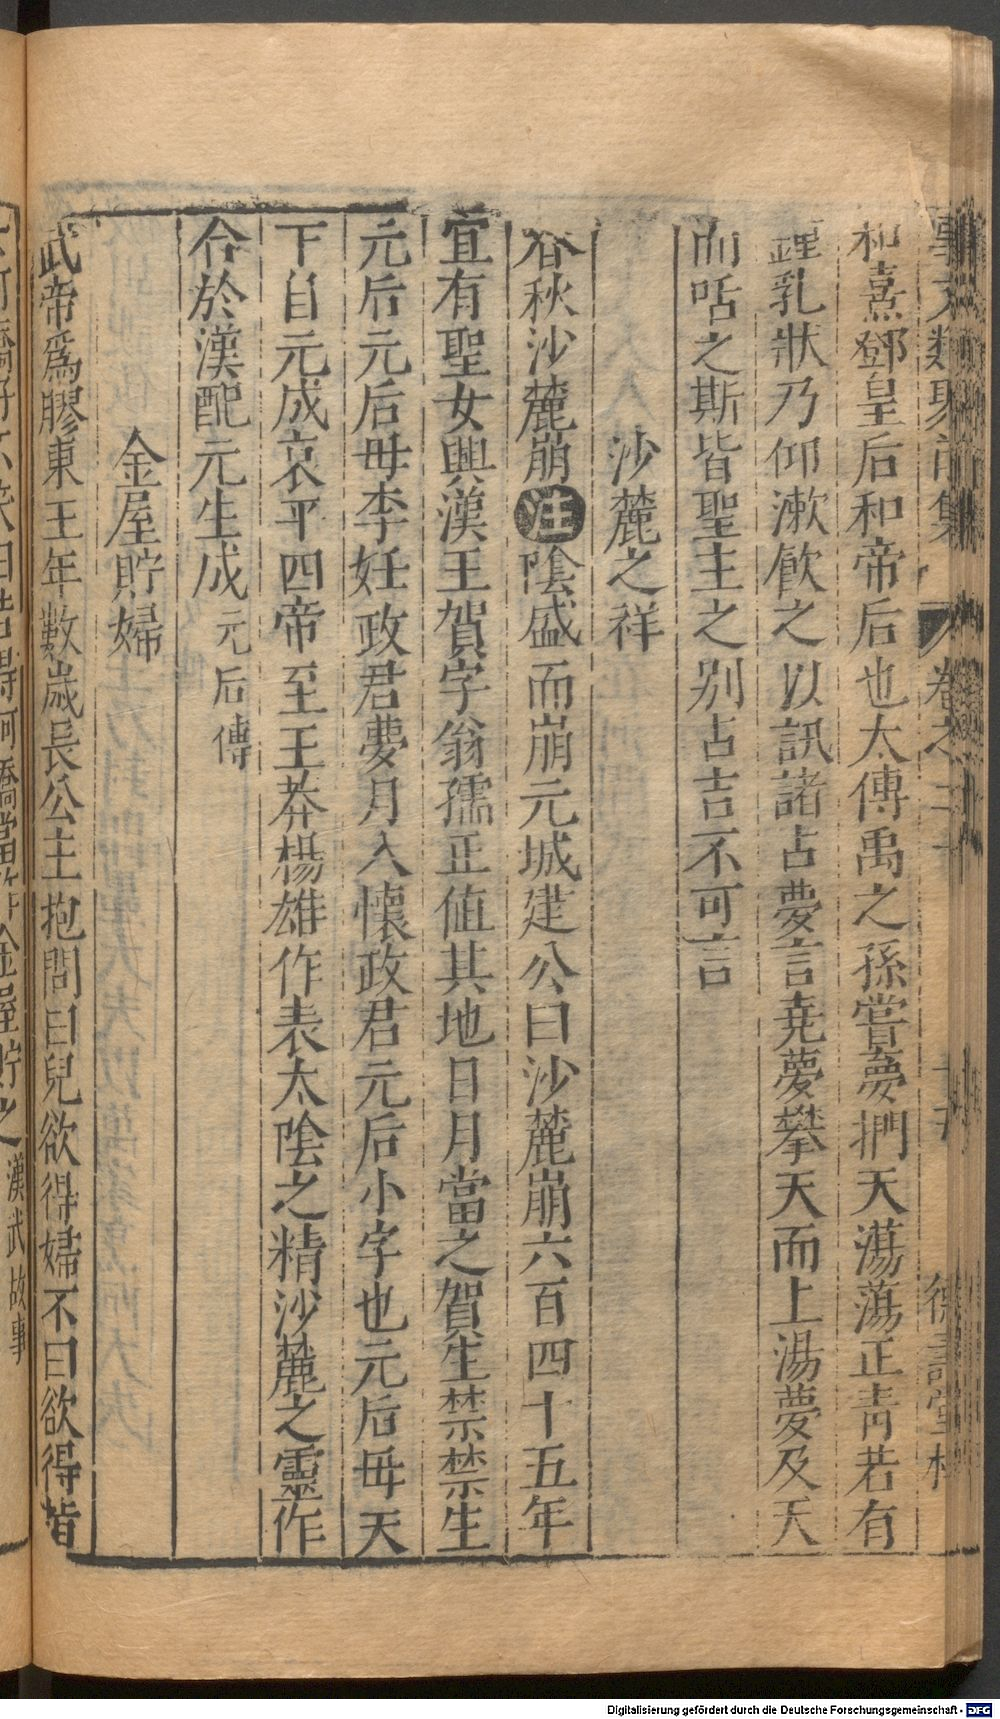 事文類聚前集 卷之二十 德壽堂梓
和熹鄧皇后和帝后也太傅禹之孫嘗夢捫天蕩蕩正青若有
鍾乳狀乃仰漱飮之以訊諸占夢言堯夢攀天而上湯夢及天
而咶之斯皆聖主之别占吉不可言
沙麓之祥
春秋沙麓崩注陰盛而崩元城建公曰沙麓崩六百四十五年
宜有聖女興漢王賀字翁孺正值其地日月當之賀生禁禁生
元后元后母李妊政君夢月入懷政君元后小字也元后毋天
下自元成哀平四帝至王莽楊雄作表太陰之精沙麓之靈作
合於漢配元生成元后傳
金屋貯婦
武帝爲膠東王年數歲長公主抱問曰兒欲得婦不曰欲得指
阿嬌好不笑曰若得阿嬌當作金屋貯之漢武故事
Digitalisierung gefördert durch die Deutsche Forschungsgemeinschaft - DFG